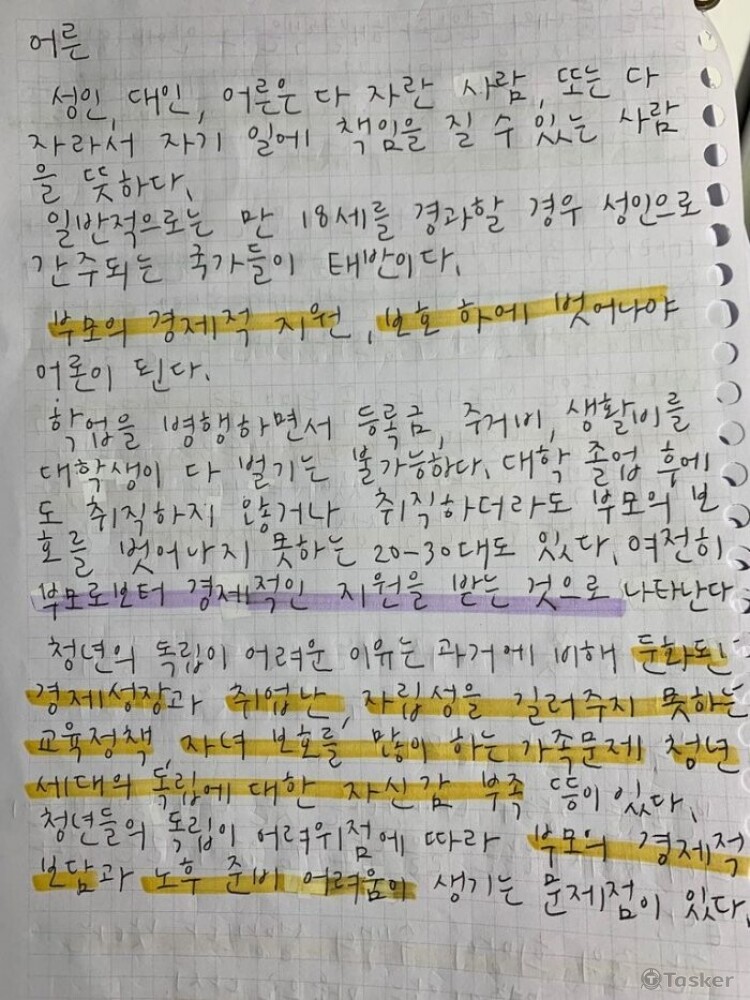 어른
성인, 대인, 어른은 다 자란 사람, 또는 다
자라서 자기 일에 책임을 질 수 있는 사람
을 뜻하다.
일반적으로는 만 18세를 경과할 경우 성인으로
간주되는 국가들이 태반이다.
부모의 경제적 지원, 보호 하에 벗어나야
어른이 된다.
학업을 병행하면서 등록금, 주거비, 생활비를
대학생이 다 벌기는 불가능하다. 대학 졸업 후에
도 취직하지 않거나 취직하더라도 부모의 보
호를 벗어나지 못하는 20-30대도 있다. 여전히
부모로보터 경제적인 지원을 받는 것으로 나타난다
청년의 독립이 어려운 이유는 과거에 비해 둔화된
경제성장과 취업난, 자립성을 길러주지 못하는
교육정책, 자녀 보호를 많이 하는 가족문제, 청년
세대의 독립에 대한 자신감 부족 등이 있다.
청년들의 독립이 어려워점에 따라 부모의 경제적
보담과 노후 준비 어려움이 생기는 문제점이 있다.
Tasker